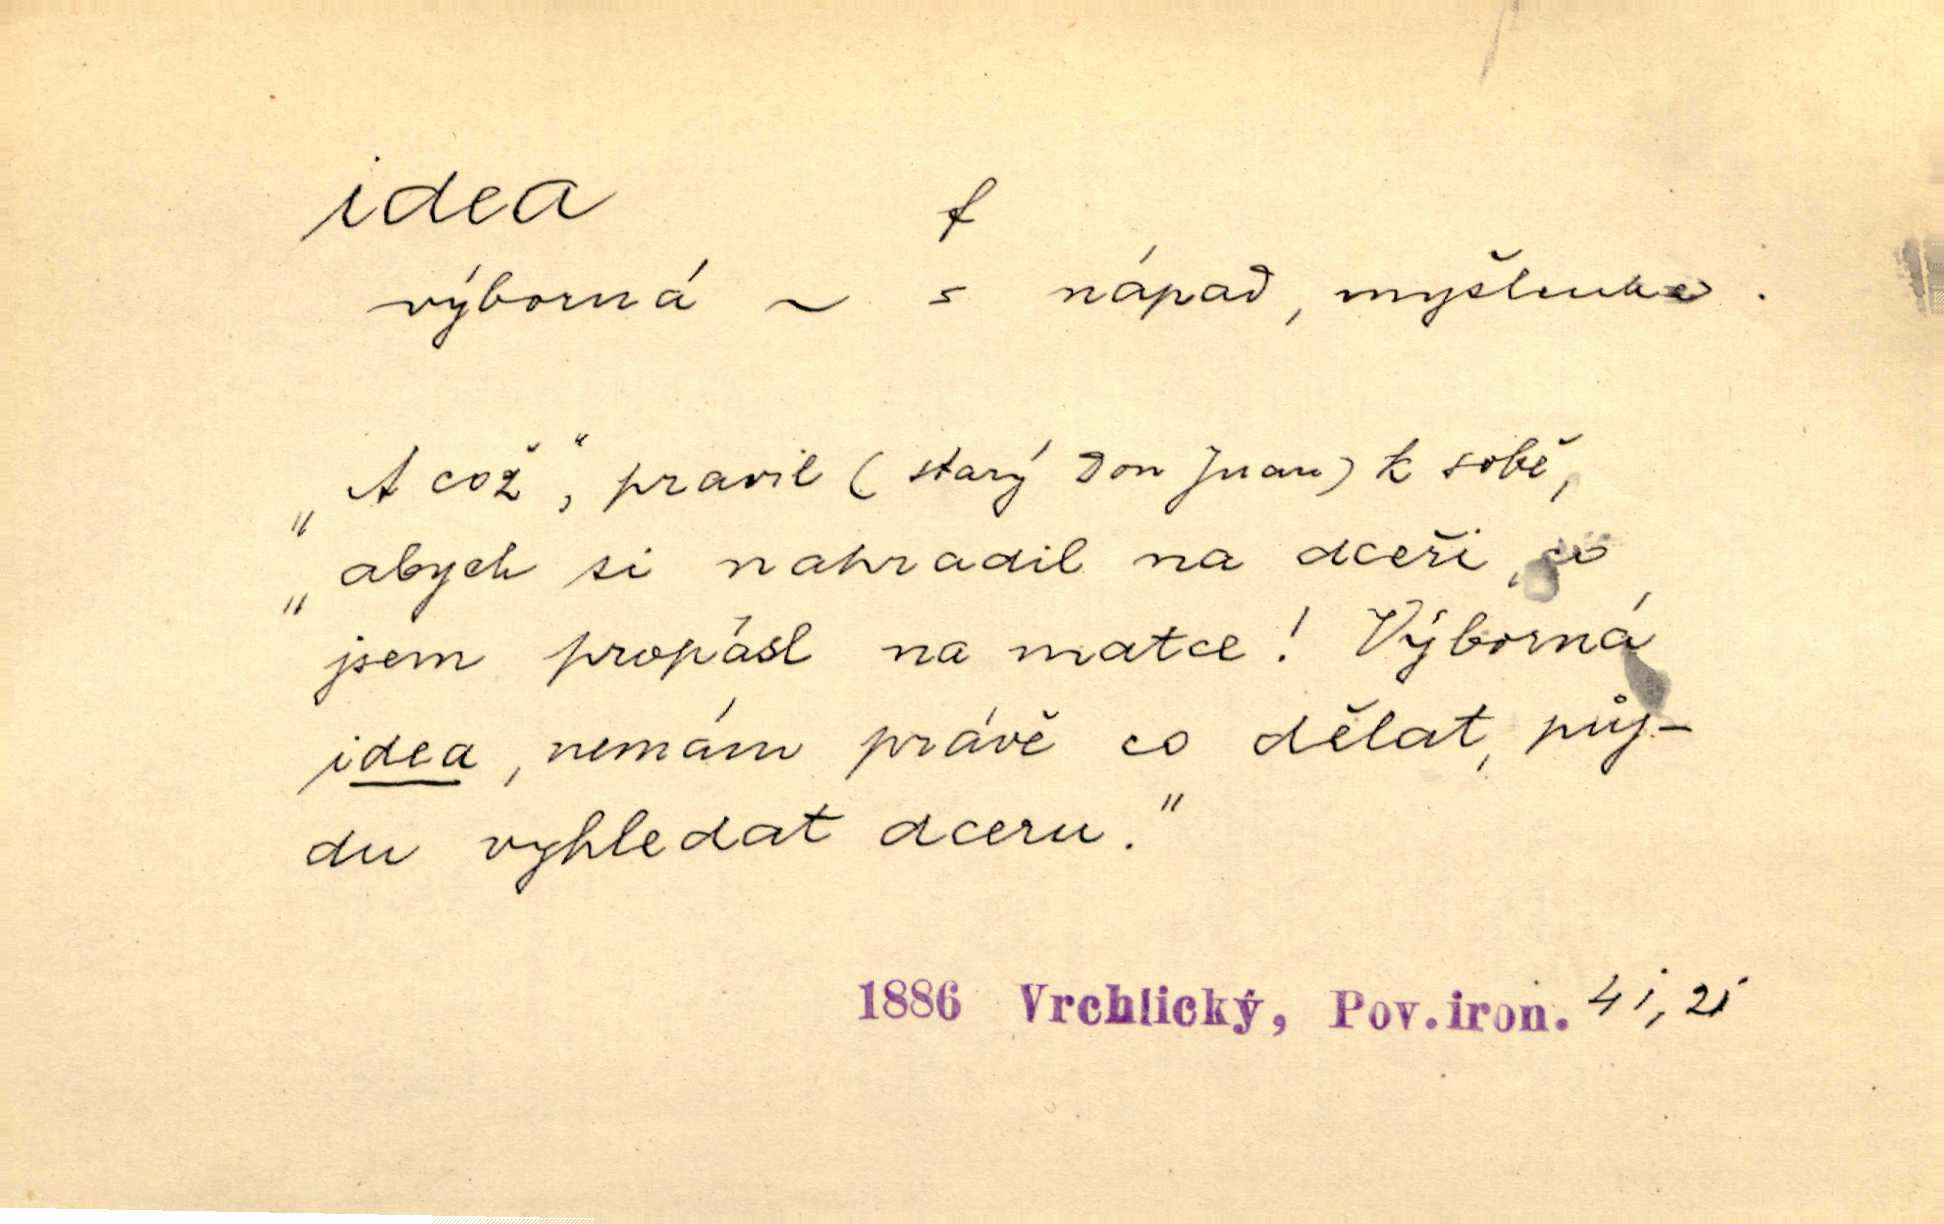 idea f
výborná ~ s nápad, myšlenka.
„A což“, pravil (starý Don Juan) k sobě,
„abych si nahradil na dceři, co
jsem propásl na matce! Výborná
idea, nemám právě co dělat, půj-
du vyhledat dceru."
1886 Vrchlický, Pov.iron. 4i, 2i